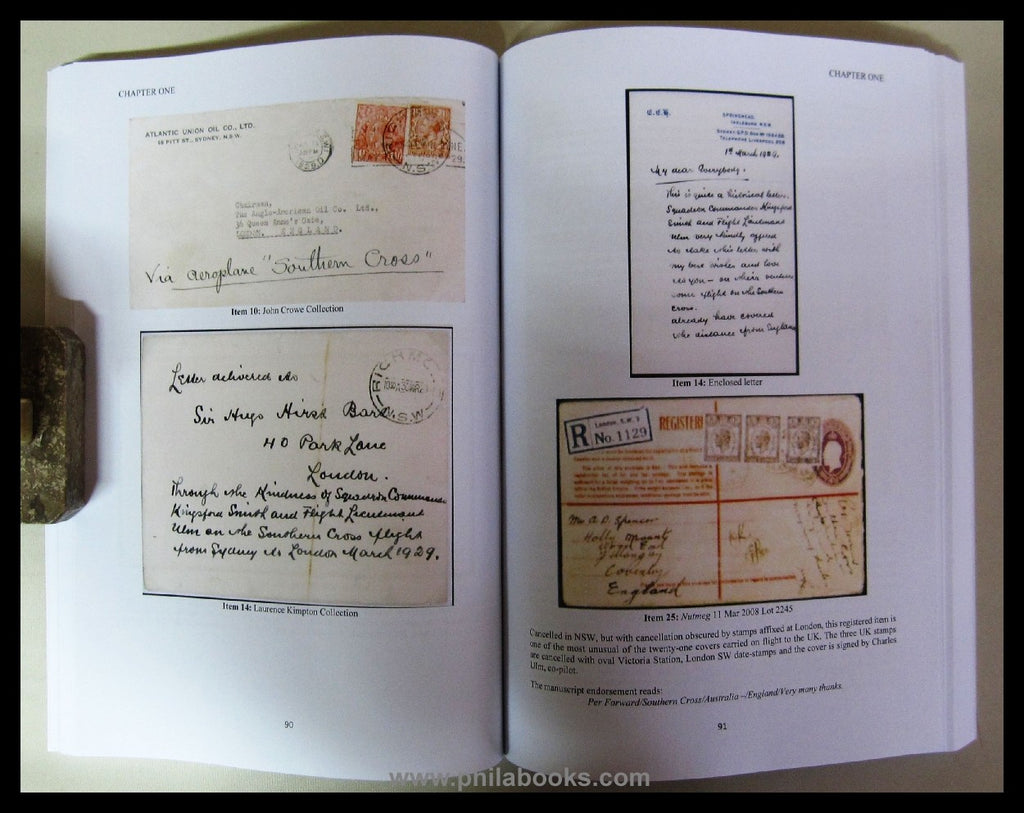 CHAPTER ONE
ATLANTIC UNION OIL CO., LTD.
16 PITT ST., SYDNEY, N.S.W.
Chairman,
The Anglo-American Oil Co. Ltd.,
36 Queen Anne's Gate,
LONDON. ENGLAND.
Via aeroplane "Southern Cross"
Item 10: John Crowe Collection
Letter delivered to
Sir Hugo Hirst Bart.
40 Park Lane
London.
Through the Kindness of Squadron Commander
Kingsford Smith and Flight Lieutenant
Ulm on the Southern Cross flight
from Sydney to London March 1929.
RICHMO
N.S.W
Item 14: Laurence Kimpton Collection
90
CHAPTER ONE
SPRINGMEAD,
INGLEBURN, N.S.W.
1st March 1929.
My dear Everybody,
This is quite a historical letter.
Squadron Commander Kingsford
Smith and Flight Lieutenant
Ulm very kindly offered
to take this letter with
my best wishes and love
to you - on their
flight on the Southern
Cross.
already have covered
the distance from England
Item 14: Enclosed letter
R London, S.W.
No. 1129
REGISTERE
Mrs A. D. Spencer
Holly
Coventry
England
Item 25: Nutmeg 11 Mar 2008 Lot 2245
Cancelled in NSW, but with cancellation obscured by stamps affixed at London, this registered item is
one of the most unusual of the twenty-one covers carried on flight to the UK. The three UK stamps
are cancelled with oval Victoria Station, London SW date-stamps and the cover is signed by Charles
Ulm, co-pilot.
The manuscript endorsement reads:
Per Forward/Southern Cross/Australia –/England/Very many thanks.
91
www.philabooks.com